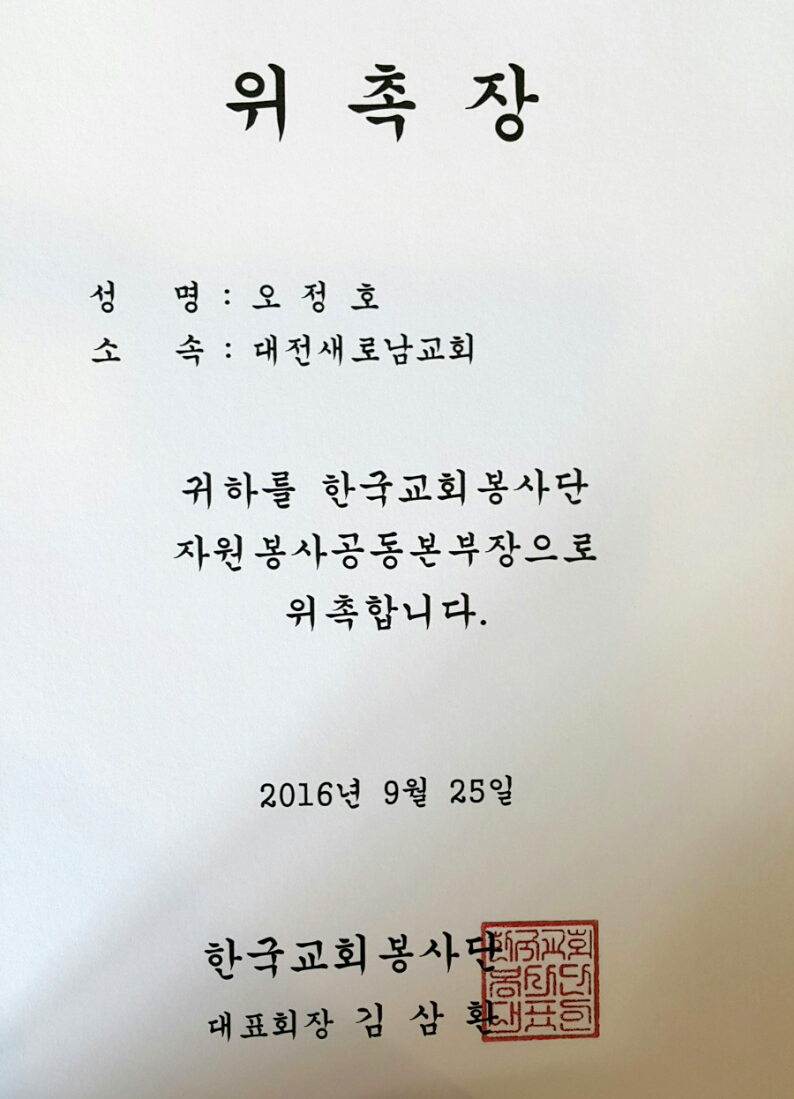 위 촉 장
성 명 : 오 정 호
소 속 : 대전새로남교회
귀하를 한국교회봉사단
자원봉사공동본부장으로
위촉합니다.
2016년 9월 25일
한국교회봉사단
대표회장 김 삼 환